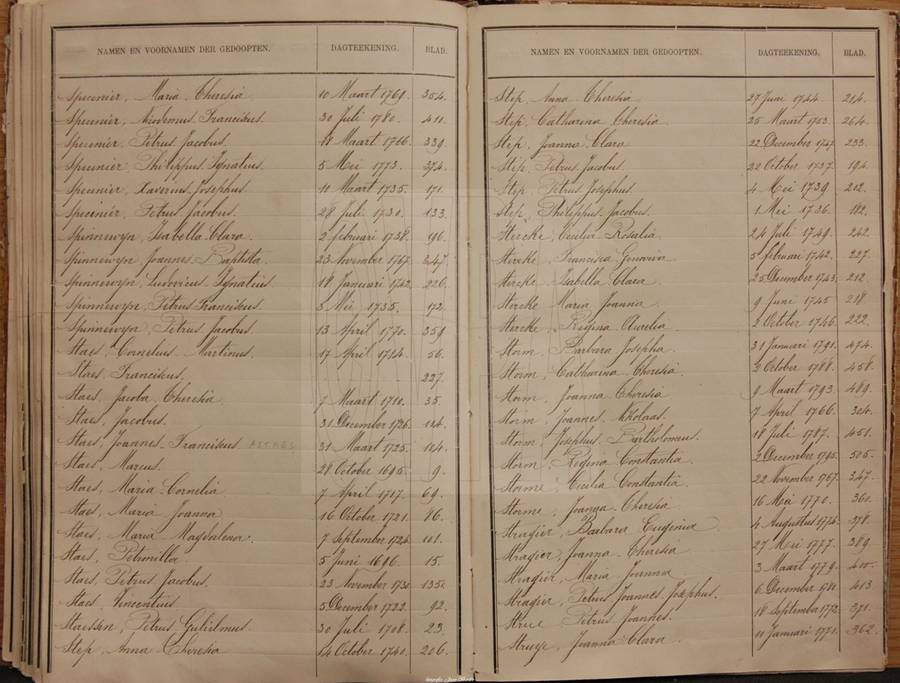 NAMEN EN VOORNAMEN DER GEDOOPTEN. DAGTEEKENING. BLAD.
Specenier, Maria Cheresia 10 Maart 1769. 354.
Specenier, Franciskus 30 Juli 1780. 411.
Specenier, Petrus Jacobus. 18 Maart 1766. 339.
Specenier, Philippus Ignatius. 5 Mei 1773. 374.
Specenier, Xaverius Josephus 11 Maart 1735. 171.
Specenier, Petrus Jacobus. 28 Juli 1730. 133.
Spinnewyn, Isabella Clara. 2 februari 1738. 196.
Spinnewyn, Joannes Baptista. 23 November 1767. 347.
Spinnewyn, Ludovicus Ignatius 18 Januari 1742. 226.
Spinnewyn, Petrus Franciskus. Mei 1735. 172.
Spinnewyn, Petrus Jacobus 13 April 1770. 359.
Staes, Cornelius Martinus. 17 April 1714. 56.
Staes, Franciskus. 227.
Staes, Jacoba Cheresia 7 Maart 1710. 35.
Staes, Jacobus. 31 December 1726.
Staes, Joannes Franciskus 31 Maart 1725. 104.
Staes, Marcus. 28 October 1695. 9.
Staes, Maria Cornelia 7 April 1717. 69.
Staes, Maria Joanna 16 October 1721. 86.
Staes, Maria Magdalena. 7 September 1724. 101.
Staes, Petronilla 5 Juni 1696. 15.
Staes, Petrus Jacobus. 23 November 1730. 135.
Staes, Vincentius 5 December 1722. 92.
Staessen, Petrus Gulielmus. 30 Juli 1708. 23.
Step, Anna Cheresia 14 October 1740. 206.
NAMEN EN VOORNAMEN DER GEDOOPTEN. DAGTEEKENING. BLAD.
Step, Anna Cheresia 27 Juni 1744. 214.
Step, Catharina Cheresia 25 Maart 1753. 264.
Step, Joanna Clara 22 December 1747. 233.
Step, Petrus Jacobus. 22 October 1737. 194.
Step, Petrus Josephus. 4 Mei 1739. 212.
Step, Philippus Jacobus. 1 Mei 1736. 182.
Stercke, Cecilia Rosalia. 24 Juli 1749. 242.
Stercke, Francisca Genoveva 5 februari 1742. 227.
Stercke, Isabella Clara 25 December 1743. 212.
Stercke, Maria Joanna 9 Juni 1745 218.
Stercke, Regina Aurelia 2 October 1746. 222.
Storm, Barbara Josepha. 31 Januari 1791. 474.
Storm, Catharina Cheresia 2 October 1788. 458.
Storm, Joanna Cheresia 9 Maart 1793. 489.
Storm, Joannes Nikolaas. 7 April 1766. 304.
Storm, Josephus Bartholomeus. 18 Juli 1787. 451.
Storm, Regina Constantia. 2 December 1795. 505.
Storme, Cecilia Constantia. 22 November 1767. 347.
Storme, Joanna Cheresia 16 Mei 1770. 360.
Stragier, Barbara Eugenia 4 Augustus 1774. 378.
Stragier, Joanna Cheresia 27 Mei 1777. 389.
Stragier, Maria Joanna 3 Maart 1779. 400.
Stragier, Petrus Joannes Josephus. 6 December 1780. 413
Petrus Joannes. 18 September 1772. 371.
Joanna Clara 11 Januari 1771. 362.